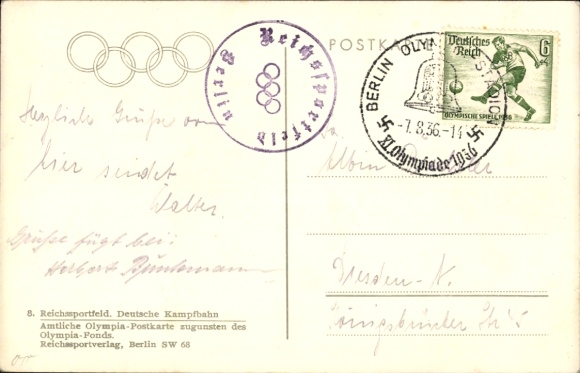 Reichssportfeld
Berlin
POSTKARTE
BERLIN OLYMPIA-STADION
-7.8.36.-14
XI. Olympiade 1936
Deutsches
Reich
6
OLYMPISCHE SPIELE 1936
Herzliche Grüße von
hier sendet
Walter.
Grüße fügt bei:
Herbert
Dresden-N.
Königsbrücker Str.
8. Reichssportfeld. Deutsche Kampfbahn
Amtliche Olympia-Postkarte zugunsten des
Olympia-Fonds.
Reichssportverlag, Berlin SW 68